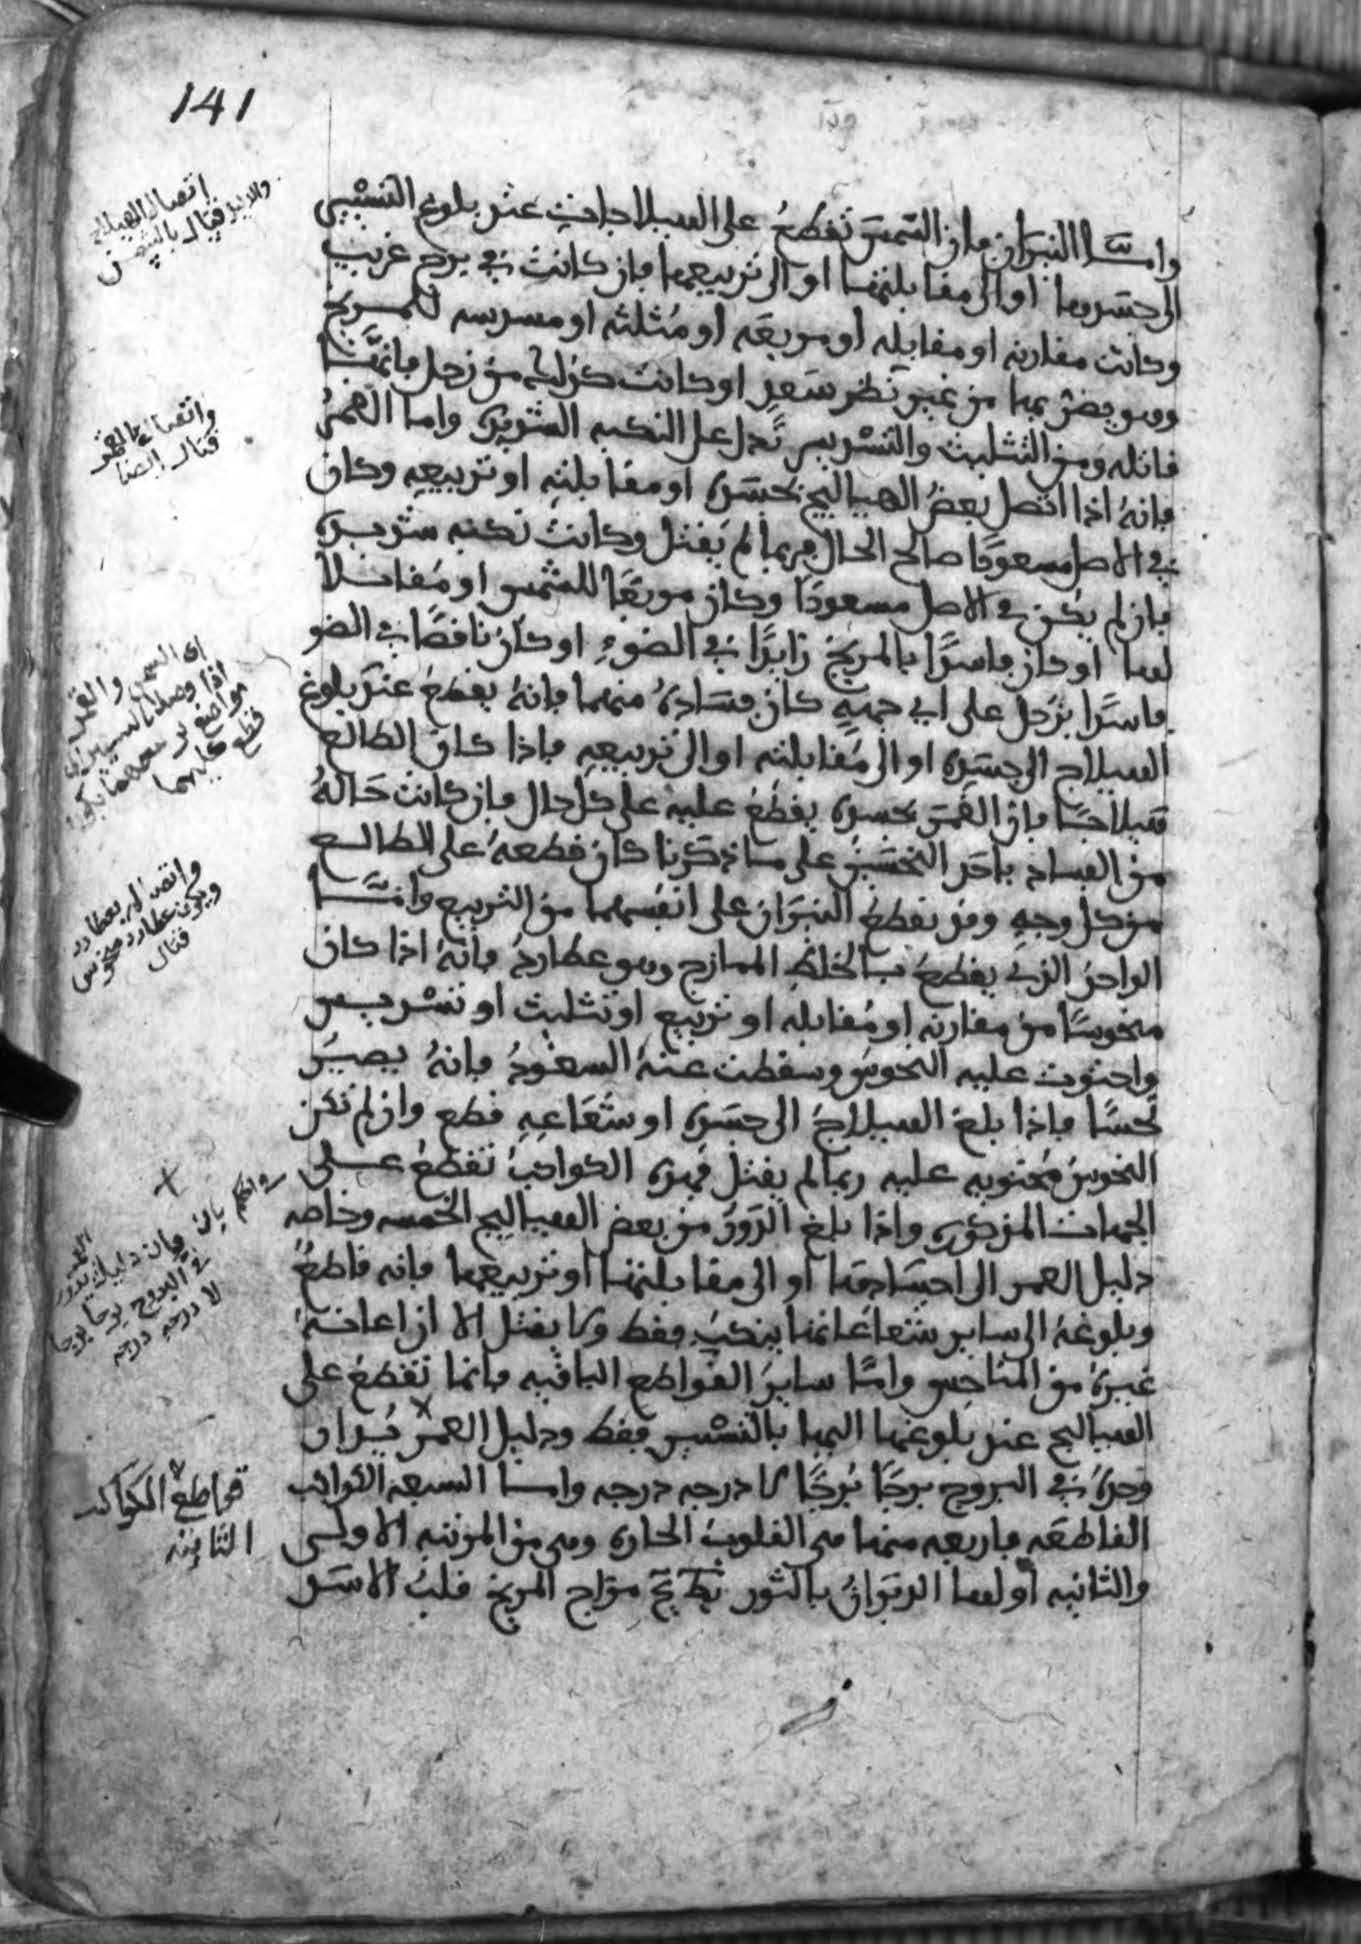 141
وامـا النيران فان الشمس تقطع على الهيلاجات عند بلوغ التسيير
الى جسدها او الى مقابلتها او الى تربيعها فان كانت في برج غريب
وكانت مقارنه او مقابله او مربعه او مثلثه او مسدسه للمريخ
وهو يضر بها من غير نظر سعد او كانت كذلك من زحل فانها
قاتله ومن التثليث والتسديس تدل على النكبه الشديده واما القمر
فانه اذا اتصل بعض الهيالج بجسده او مقابلته او تربيعه وكان
في الاصل مسعودا صالح الحال فربما لم يقتل وكانت نكبه شديده
فان لم يكن في الاصل مسعودا وكان مربعا للشمس او مقابلا
لها او كان فاسدا بالمريخ زايدا في الضوء او كان ناقصا في الضو
فاسدا بزحل على اي جهه كان فساده منهما فانه يقطع عند بلوغ
الهيلاج الى جسده او الى مقابلته او الى تربيعه فاذا كان الطالع
هيلاجا فان القمر بجسده يقطع عليه على كل حال فان كانت حاله
من الفساد باحد النحسين على ما ذكرنا كان قطعه على الطالـع
من كل وجه وقد تقطع النيران على انفسهما من التربيع وامـا
الواحد الذي يقطع بـالخلط الممازج وهو عطارد فانه اذا كان
منحوسا من مقارنه او مقابله او تربيع او تثليث او تسديس
واحتوت عليه النحوس وسقطت عنه السعود فانه يصير
نحسا فاذا بلغ الهيلاج الى جسده او شعاعه قطع وان لم تكن
النحوس محتويه عليه ربما لم يقتل فهذه الكواكب تقطع عـلى
الجهات المذكوره واذا بلغ الدور من بعض الهيالج الخمسه وخاصه
دليل العمر الى اجسادها او الى مقابلتها او تربيعها فانه قاطع
وبلوغه الى ساير شعاعاتها ينكب فقط ولا يقتل الا ان اعانه
غيره من المناحس واما ساير القواطع الباقيه فانما تقطع على
الهيالج عند بلوغها اليها بالتسيير فقط ودليل العمر يدار
وحده في البروج برجا برجا لا درجه درجه وامـا السبعه الكواكب
القاطعه فاربعه منها هي القلوب الحاره وهي من المرتبه الاولى
والثانيه اولها الدبران بالثور مزاج المريخ قلب الاسد
اتصال الهيلاج
بالشمس
واتصاله بالقمر
قتال ايضا
اي الشمس والقمر
قطع عليهما
واتصاله بعطارد
ويكون عطارد منحوس
قتال
في البروج برجا برجا
لا درجه درجه
قواطع الكواكب
الثابته